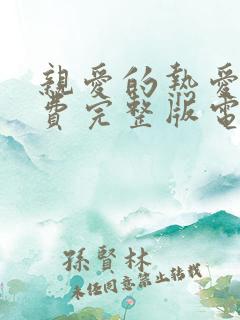 親愛的熱愛
費完整版電
孫賢林
未任同意禁止转载